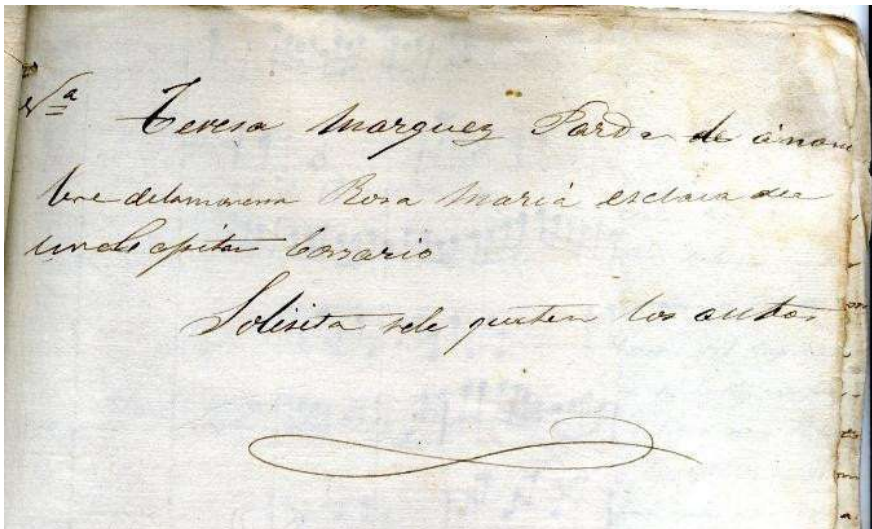 Teresa Marquez Parda de á nom
bre delamorena Rosa Mariá esclava de
un Capitan Corsario
Solisita sele quiten los autos